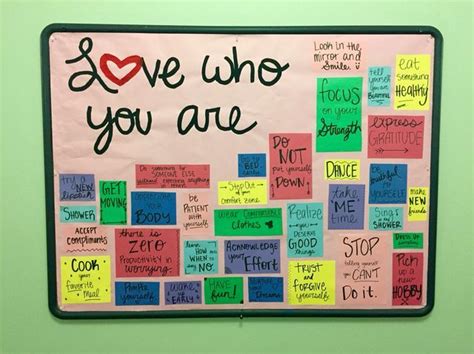 Love who
you are
Look in the
mirror and
Smile.
tell
yourself
you are
Beautiful
eat
something
Healthy
focus
on your
Strength
express
GRATITUDE
DO
NOT
put
yourself
DOWN.
DANCE
be
to
YOURSELF
try a
NEW
lipstick
GET
MOVING
Do something for
SOMEONE ELSE
without expecting anything
in return
BED
Step Out of
your
comfort zone
take
"ME"
time
make
NEW
friends
SHOWER
YOUR
BODY
be
PATIENT
with
YOURSELF
wear
clothes
Realize
you
DESERVE
GOOD
THINGS
Sing in
the
SHOWER
ACCEPT
compliments
there is
ZERO
PRODUCTIVITY IN
worrying.
learn
HOW
and
WHEN
to say
NO.
ACKNOWLEDGE
your
Effort
STOP
telling yourself
you CAN'T
Do it.
Dress up
COOK
your
favorite
Meal
Trust
and
FORGIVE
yourself
Pick
up a
new
HOBBY
PAMPER
YOURSELF
WAKE
up
EARLY
HAVE
fun!
your Dreams